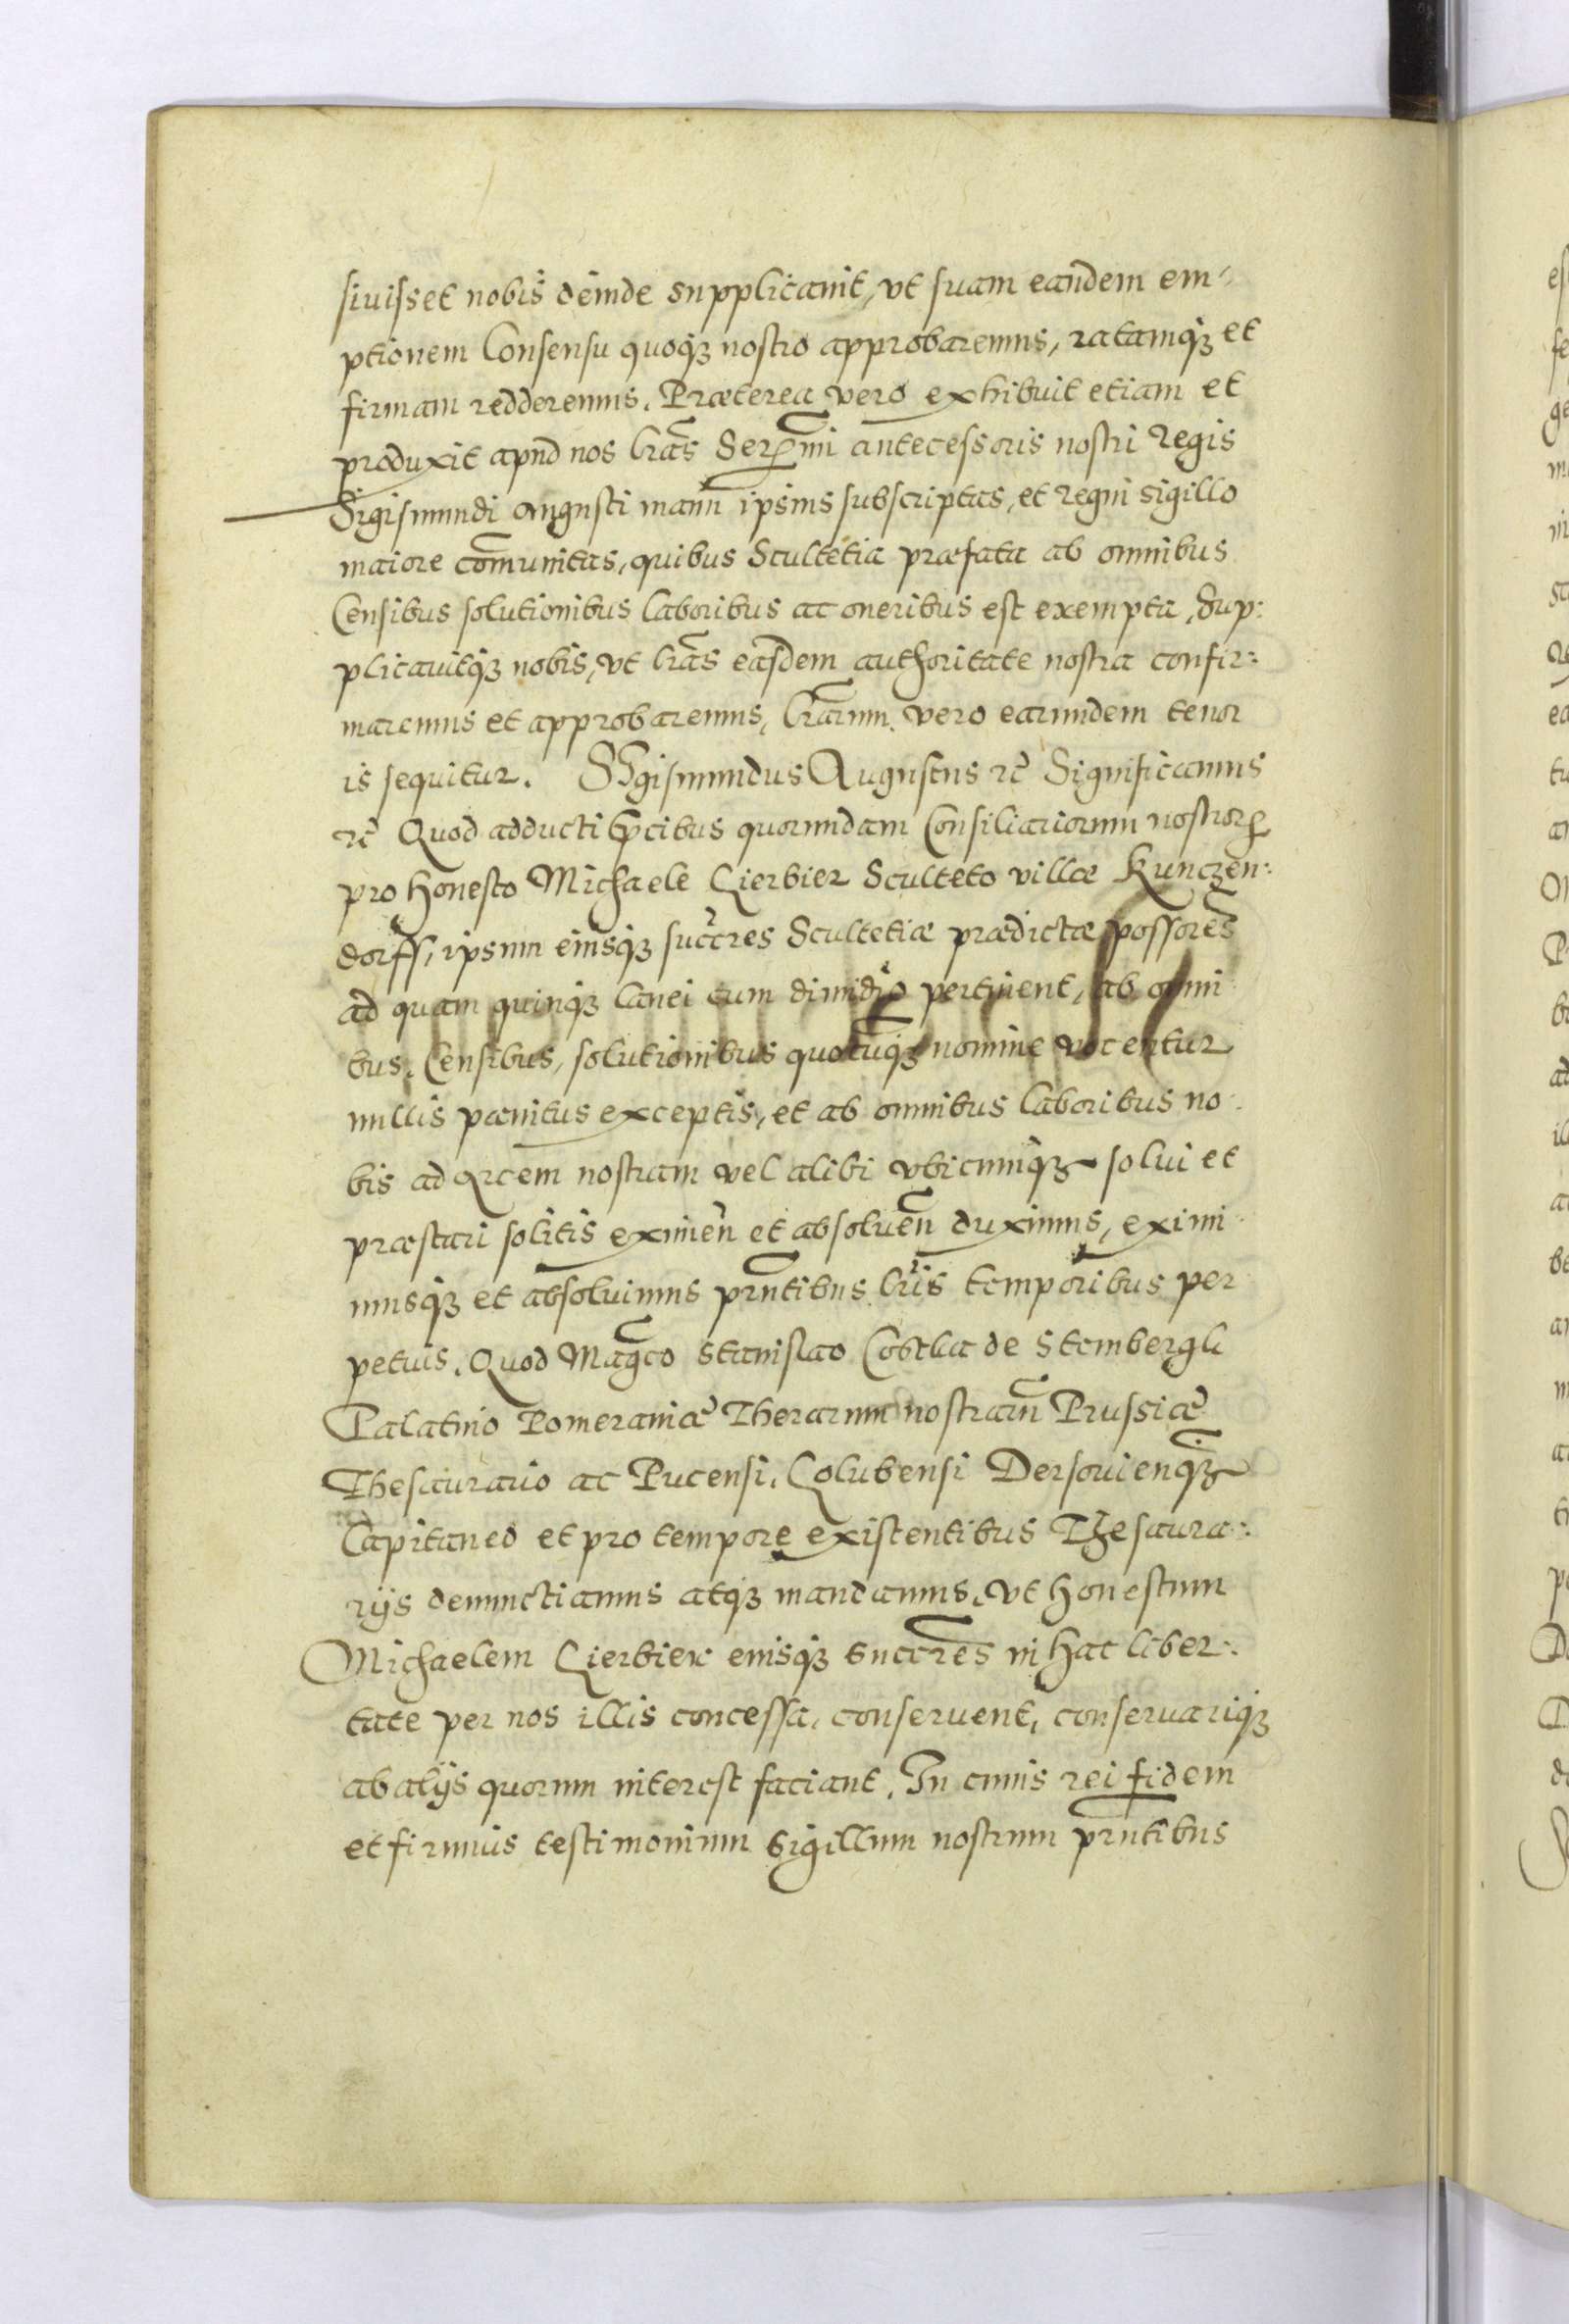 siuisset nobis deinde supplicauit, vt suam eandem em-
ptionem Consensu quoqꜣ nostro approbaremus, ratamqꜣ et
firmam redderemus. Præterea vero exhibuit etiam et
produxit apud nos lr̃as Ser̃mi antecessoris nostri Regis
Sigismundi Augusti manu ipsius subscriptas, et regni sigillo
maiore com̃unitas, quibus Scultetia præfata ab omnibus
Censibus solutionibus laboribus ac oneribus est exempta, Sup:
plicauitqꜣ nobis, vt lr̃as easdem authoritate nostra confir:
maremus et approbaremus, lr̃arum vero earundem tenor
is sequitur. Sigismundus Augustus rc̃ Significamus
rc̃ Quod adducti p̃cibus quorundam Consiliariorum nostror̃
pro honesto Michaele Lierbier Sculteto villæ Kunczen:
dorff, ipsum eiusqꜣ succr̃es Scultetiæ prædictæ possores̃
ad quam quinqꜣ lanei cum dimidio pertinent, ab omni
bus Censibus, solutionibus quocuqꜣ nomine vocentur
nullis pænitus exceptis, et ab omnibus laboribus no:
bis ad Arcem nostram vel alibi vbicunqꜣ solui et
præstari solitis eximen̄ et absoluen̄ duximus, eximi
musqꜣ et absoluimus pr̃ntibus lr̃is temporibus per
petuis. Quod Mag̃co Stanislao Costka de Stembergk
Palatino Pomeraniæ Therarum nostrarũ Prussiæ
Thesaurario ac Pucensi, Golubensi Dersouienqꜣ
Capitaneo et pro tempore existentibus Thesaura:
rijs denunctiamus atqꜣ mandamus, vt honestum
Michaelem Lierbier eiusqꜣ succr̃es in hac liber:
tate per nos illis concessa, conseruent, conseruariqꜣ
ab alijs quorum interest faciant. In cuius rei fidem
et firmius testimonium Sigillum nostrum pr̃ntibus